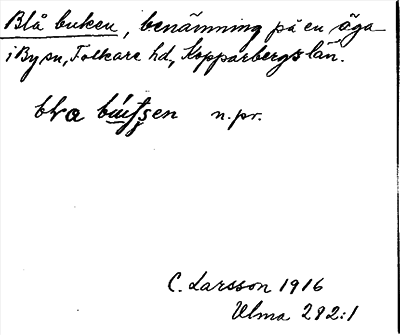 Blå buken, benämning på en äga
i By sn, Folkare hd, Kopparbergs län.
n.pr.
C. Larsson 1916
Ulma 282:1